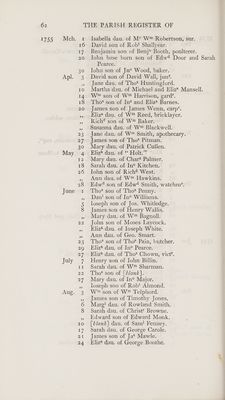 62 THE PARISH REGISTER OF
1755 Mch. 2 Isabella dau. of Mr Wm Robertson, sur.
16 David son of Robt Shallyear.
17 Benjamin son of Benjn Booth, poulterer.
20 John base born son of Edwd Door and Sarah
Pearce.
30 John son of Jas Wood, baker.
Apl. 3 David son of David Wall, junr.
„ Jane dau. of Thos Huntingford.
10 Martha dau. of Michael and Elizth Mansell.
14 Wm son of Wm Harrison, gardr.
18 Thos son of Jno and Elizth Barnes.
20 James son of James Wenn, carpr.
„ Elizth dau. of Wm Reed, bricklayer.
„ Richd son of Wm Baker.
„ Susanna dau. of Wm Blackwell.
21 Jane dau. of Wm Smith, apothecary.
27 James son of Thos Pitman.
30 Mary dau. of Patrick Cullen.
May 4 Elizth dau. of " Holt."
12 Mary dau. of Chars Palmer.
18 Sarah dau. of Jno Kitchen.
26 John son of Richd West.
„ Ann dau. of Wm Hawkins.
28 Edwd son of Edwd Smith, watchmr.
June 1 Thos son of Thos Penny.
„ Danl son of Jno Williams.
5 Joseph son of Jos. Whitledge.
8 James son of Henry Wallis.
„ Mary dau. of Wm Bagnoll.
22 John son of Moses Laycock.
„ Elizth dau. of Joseph White.
„ Ann dau. of Geo. Smart.
23 Thos son of Thos Pain, butcher.
29 Elizth dau. of Jno Pearce.
27 Elizth dau. of Thos Chown, victr.
July 7 Henry son of John Billin.
11 Sarah dau. of Wm Sharman.
22 Thos son of [blank].
27 Mary dau. of Jno Major.
„ Joseph son of Robt Almond.
Aug. 3 Wm son of Wm Telphord.
„ James son of Timothy Jones.
6 Margt dau. of Rowland Smith.
8 Sarah dau. of Christr Browne.
„ Edward son of Edward Monk.
10 [blank] dau. of Saml Fenney.
17 Sarah dau. of George Carole.
21 James son of Jas Mawle.
24 Elizth dau. of George Boothe.